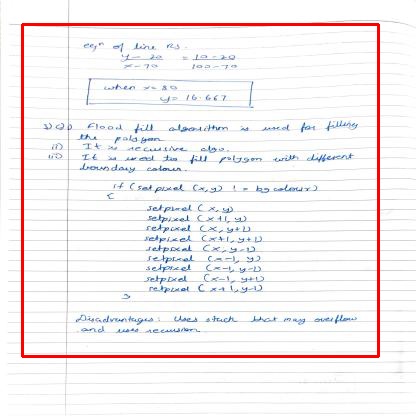 eqⁿ of line RS.
y - 20 = 10 - 20
x - 70   100 - 70
when x = 80
y = 16.667
3) Q) i) Flood fill algorithm is used for filling
the polygon
ii) It is recursive algo.
iii) It is used to fill polygon with different
boundary colour.
if (setpixel (x, y) != bgcolour)
{
setpixel (x, y)
setpixel (x+1, y)
setpixel (x, y+1)
setpixel (x+1, y+1)
setpixel (x, y-1)
setpixel (x-1, y)
setpixel (x-1, y-1)
setpixel (x-1, y+1)
setpixel (x+1, y-1)
}
Disadvantages: Uses stack that may overflow
and uses recursion.